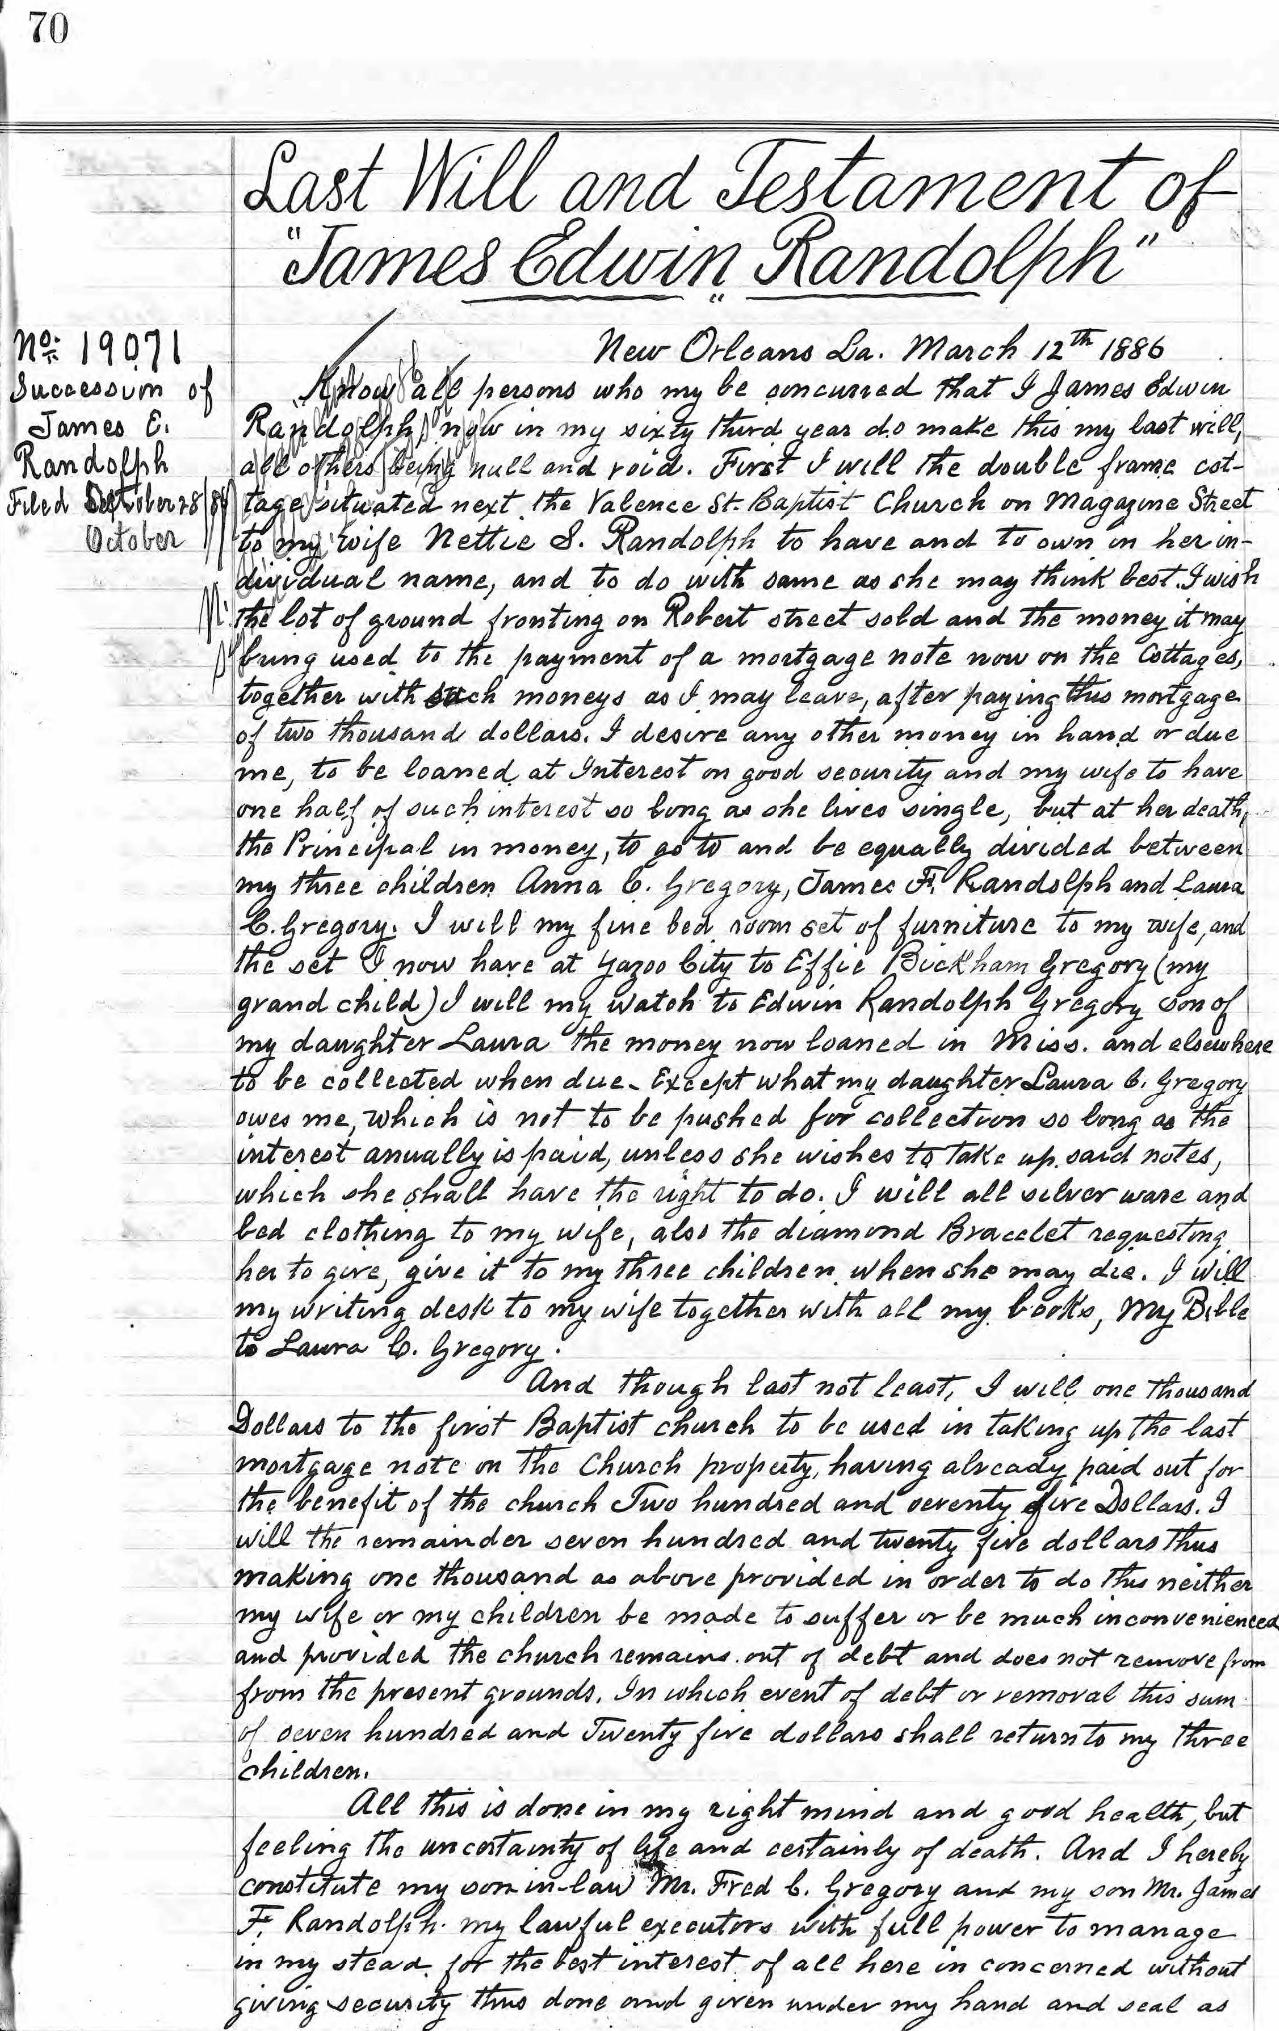 70
Last Will and Testament of
"James Edwin Randolph"
No. 19071
Succession of
James E.
Randolph
Filed
October
New Orleans La. March 12th 1886
Know all persons who my be concurred that I James Edwin
Randolph, now in my sixty third year do make this my last will,
all others being null and void. First I will the double frame cot-
tage situated next the Valence St. Baptist Church on Magazine Street
to my wife Nettie S. Randolph to have and to own in her in-
dividual name, and to do with same as she may think best. I wish
the lot of ground fronting on Robert street sold and the money it may
bring used to the payment of a mortgage note now on the Cottages,
together with such moneys as I may leave, after paying this mortgage
of two thousand dollars. I desire any other money in hand or due
me, to be loaned at Interest on good security and my wife to have
one half of such interest so long as she lives single, but at her death,
the Principal in money, to go to and be equally divided between
my three children Anna C. Gregory, James F. Randolph and Laura
C. Gregory. I will my fine bed room set of furniture to my wife, and
the set I now have at Yazoo City to Effie Bickham Gregory (my
grand child) I will my watch to Edwin Randolph Gregory son of
my daughter Laura the money now loaned in Miss. and elsewhere
to be collected when due. Except what my daughter Laura C. Gregory
owes me, which is not to be pushed for collection so long as the
interest anually is paid, unless she wishes to take up said notes,
which she shall have the right to do. I will all silver ware and
bed clothing to my wife, also the diamond Bracelet requesting
her to give, give it to my three children when she may die. I will
my writing desk to my wife together with all my books, My Bible
to Laura C. Gregory.
And though last not least, I will one thousand
Dollars to the first Baptist church to be used in taking up the last
mortgage note on the Church property, having already paid out for
the benefit of the church Two hundred and seventy five Dollars. I
will the remainder seven hundred and twenty five dollars thus
making one thousand as above provided in order to do this neither
my wife or my children be made to suffer or be much inconvenienced
and provided the church remains out of debt and does not remove from
from the present grounds. In which event of debt or removal this sum
of seven hundred and Twenty five dollars shall return to my three
children.
All this is done in my right mind and good health, but
feeling the uncertainty of life and certainly of death. And I hereby
constitute my son-in-law Mr. Fred C. Gregory and my son Mr. James
F. Randolph my lawful executors with full power to manage
in my stead for the best interest of all here in concerned without
giving security thus done and given under my hand and seal as